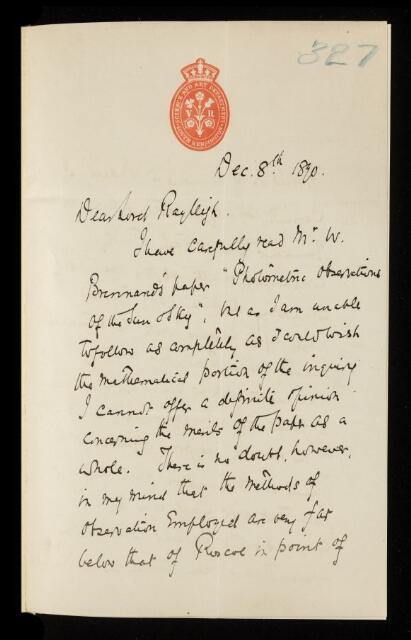 327
SCIENCE AND ART DEPARTMENT
V R
SOUTH KENSINGTON
Dec. 8th 1890.
Dear Lord Rayleigh.
I have carefully read Mr W.
Brennand's paper "Photometric observations
of the Sun & Sky", but as I am unable
to follow as completely as I could wish
the mathematical portion of the inquiry
I cannot offer a definite opinion
concerning the merits of the paper as a
whole. There is no doubt, however,
in my mind that the methods of
observation employed are very far
below that of Roscoe in point of